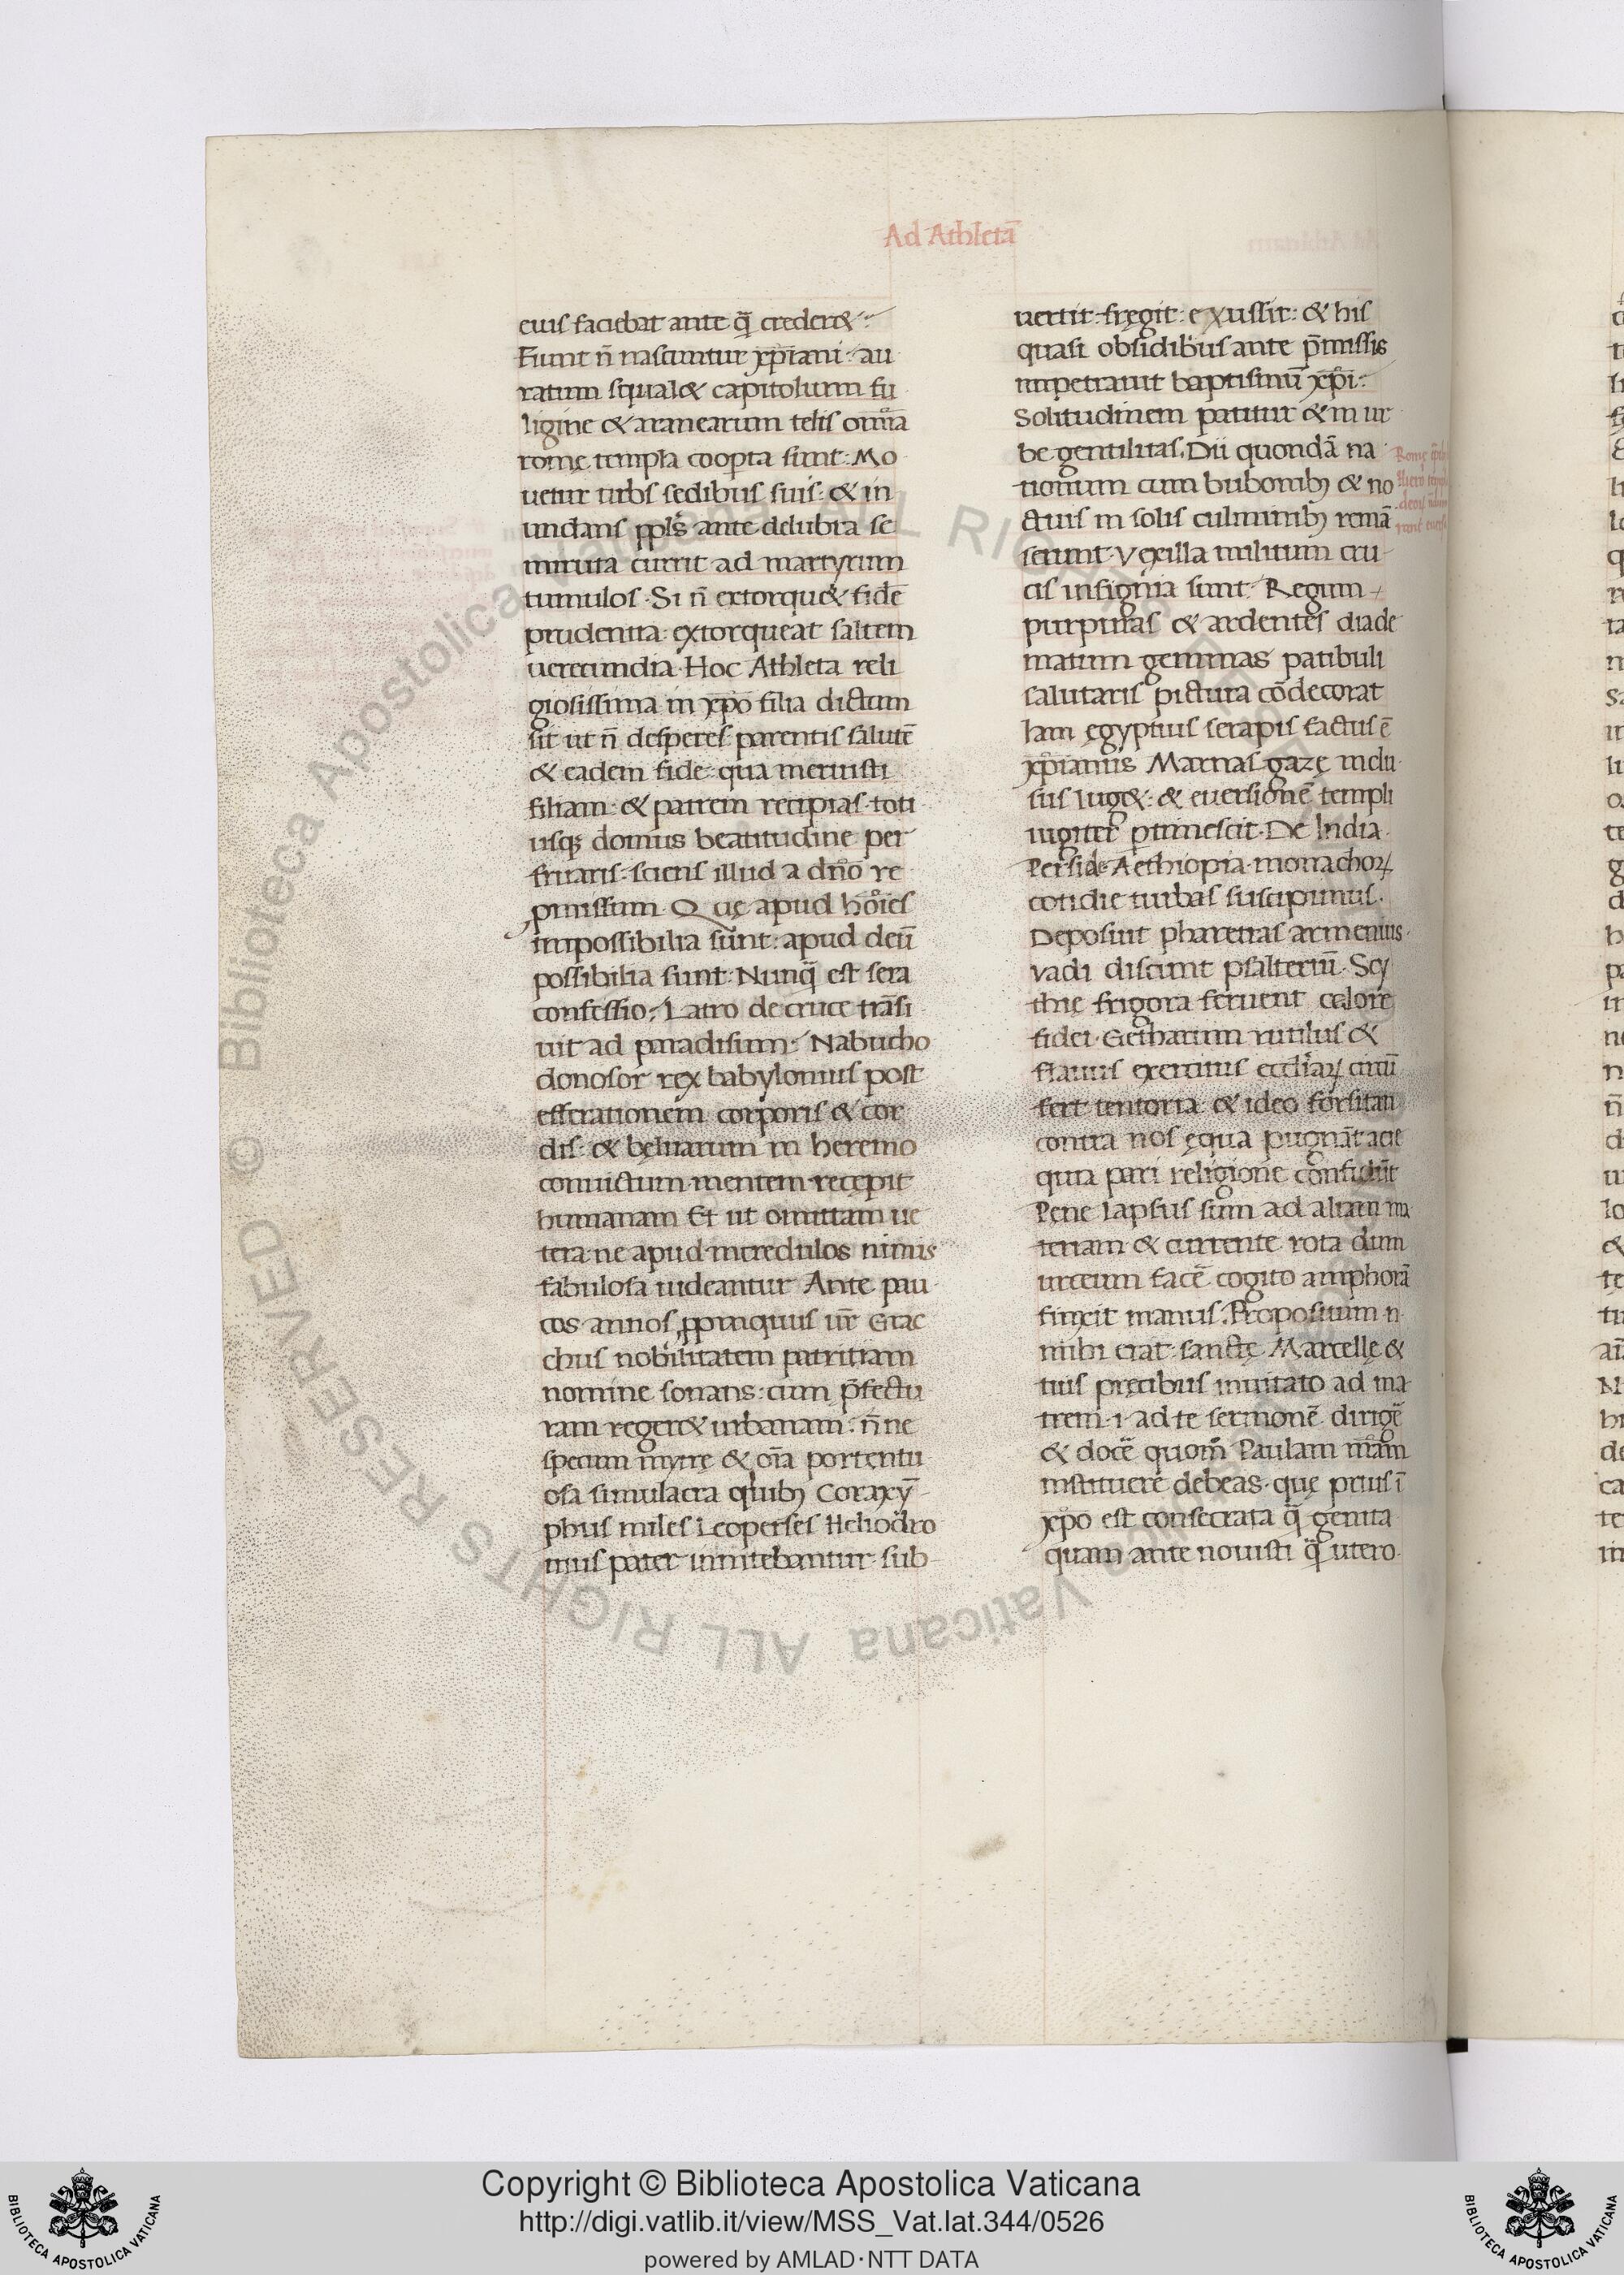 Ad Athletā
eius faciebat ante q̄ creder&:
Fiunt n̄ nascuntur xp̄iani: au
ratum squal& capitolium fu
ligine & aranearum telis om̄ia
romę templa coopta sunt: Mo
uetur urbs sedibus suis: & in
undans ppl̄s ante delubra se
miruta currit ad martyrum
tumulos. Si n̄ extorqu& fidē
prudentia: extorqueat saltem
uerecundia. Hoc Athleta reli
giosissima in xp̄o filia dictum
sit ut n̄ desperes parentis salutē
& eadem fide: qua meruisti
filiam: & patrem recipias. toti
usq; domus beatitudine per
fruaris: sciens illud a dn̄o re
pmissum. Quę apud hōies
impossibilia sunt: apud deū
possibilia sunt: Nunq̄ est sera
confessio: Latro de cruce trāsi
uit ad paradisum: Nabucho
donosor rex babylonius post
efferationem corporis & cor
dis: & beluarum in heremo
conuictum mentem recepit
humanam Et ut omittam ue
tera: ne apud incredulos nimis
fabulosa uideantur Ante pau
cos annos ppinquus ur̄ Grac
chus nobilitatem patritiam
nomine sonans: cum p̄fectu
ram reger& urbanam: n̄ne
specum myrrę & om̄ia portentu
osa simulacra quib; Coraxȳ
phus miles Leoperses Heliodro
mus pater initiebantur: sub
uertit: fręgit: exussit: & his
quasi obsidibus ante p̄missis
impetrauit baptismū xp̄i:
Solitudinem patitur & in ur
be gentilitas. Dii quondā na
tionum cum bubonib; & no
ctuis in solis culminib; remā
serunt. Vexilla militum cru
cis insignia sunt. Regum
purpuras & ardentes diade
matum gemmas patibuli
salutaris pictura cōdecorat
Iam ęgyptius serapis factus ē
xp̄ianus Marnas gazę inclu
sus lug&: & euersionē templi
iugiter ptimescit. De India
Perside Aethiopia monachorꝝ
cotidie turbas suscipimus.
Deposuit pharetras armenius
vadi discunt psalteriū. Scy
thię frigora feruent calore
fidei. Getharum rutilus &
flauus exercitus eccl̄iarꝝ circū
fert tentoria: & ideo forsitan
contra nos ęqua pugnāt acie
quia pari religione confidūt
Pene lapsus sum ad aliam ma
teriam & currente rota dum
urceum facē cogito amphorā
finxit manus. Propositum n̄
mihi erat: sanctę Marcellę &
tuis precibus inuitato ad ma
trem .i. ad te sermonē dirigē
& docē quom̄ Paulam n̄ram
instituere debeas. quę prius ī
xp̄o est consecrata q̄ genita
quam ante nouisti q̄ utero